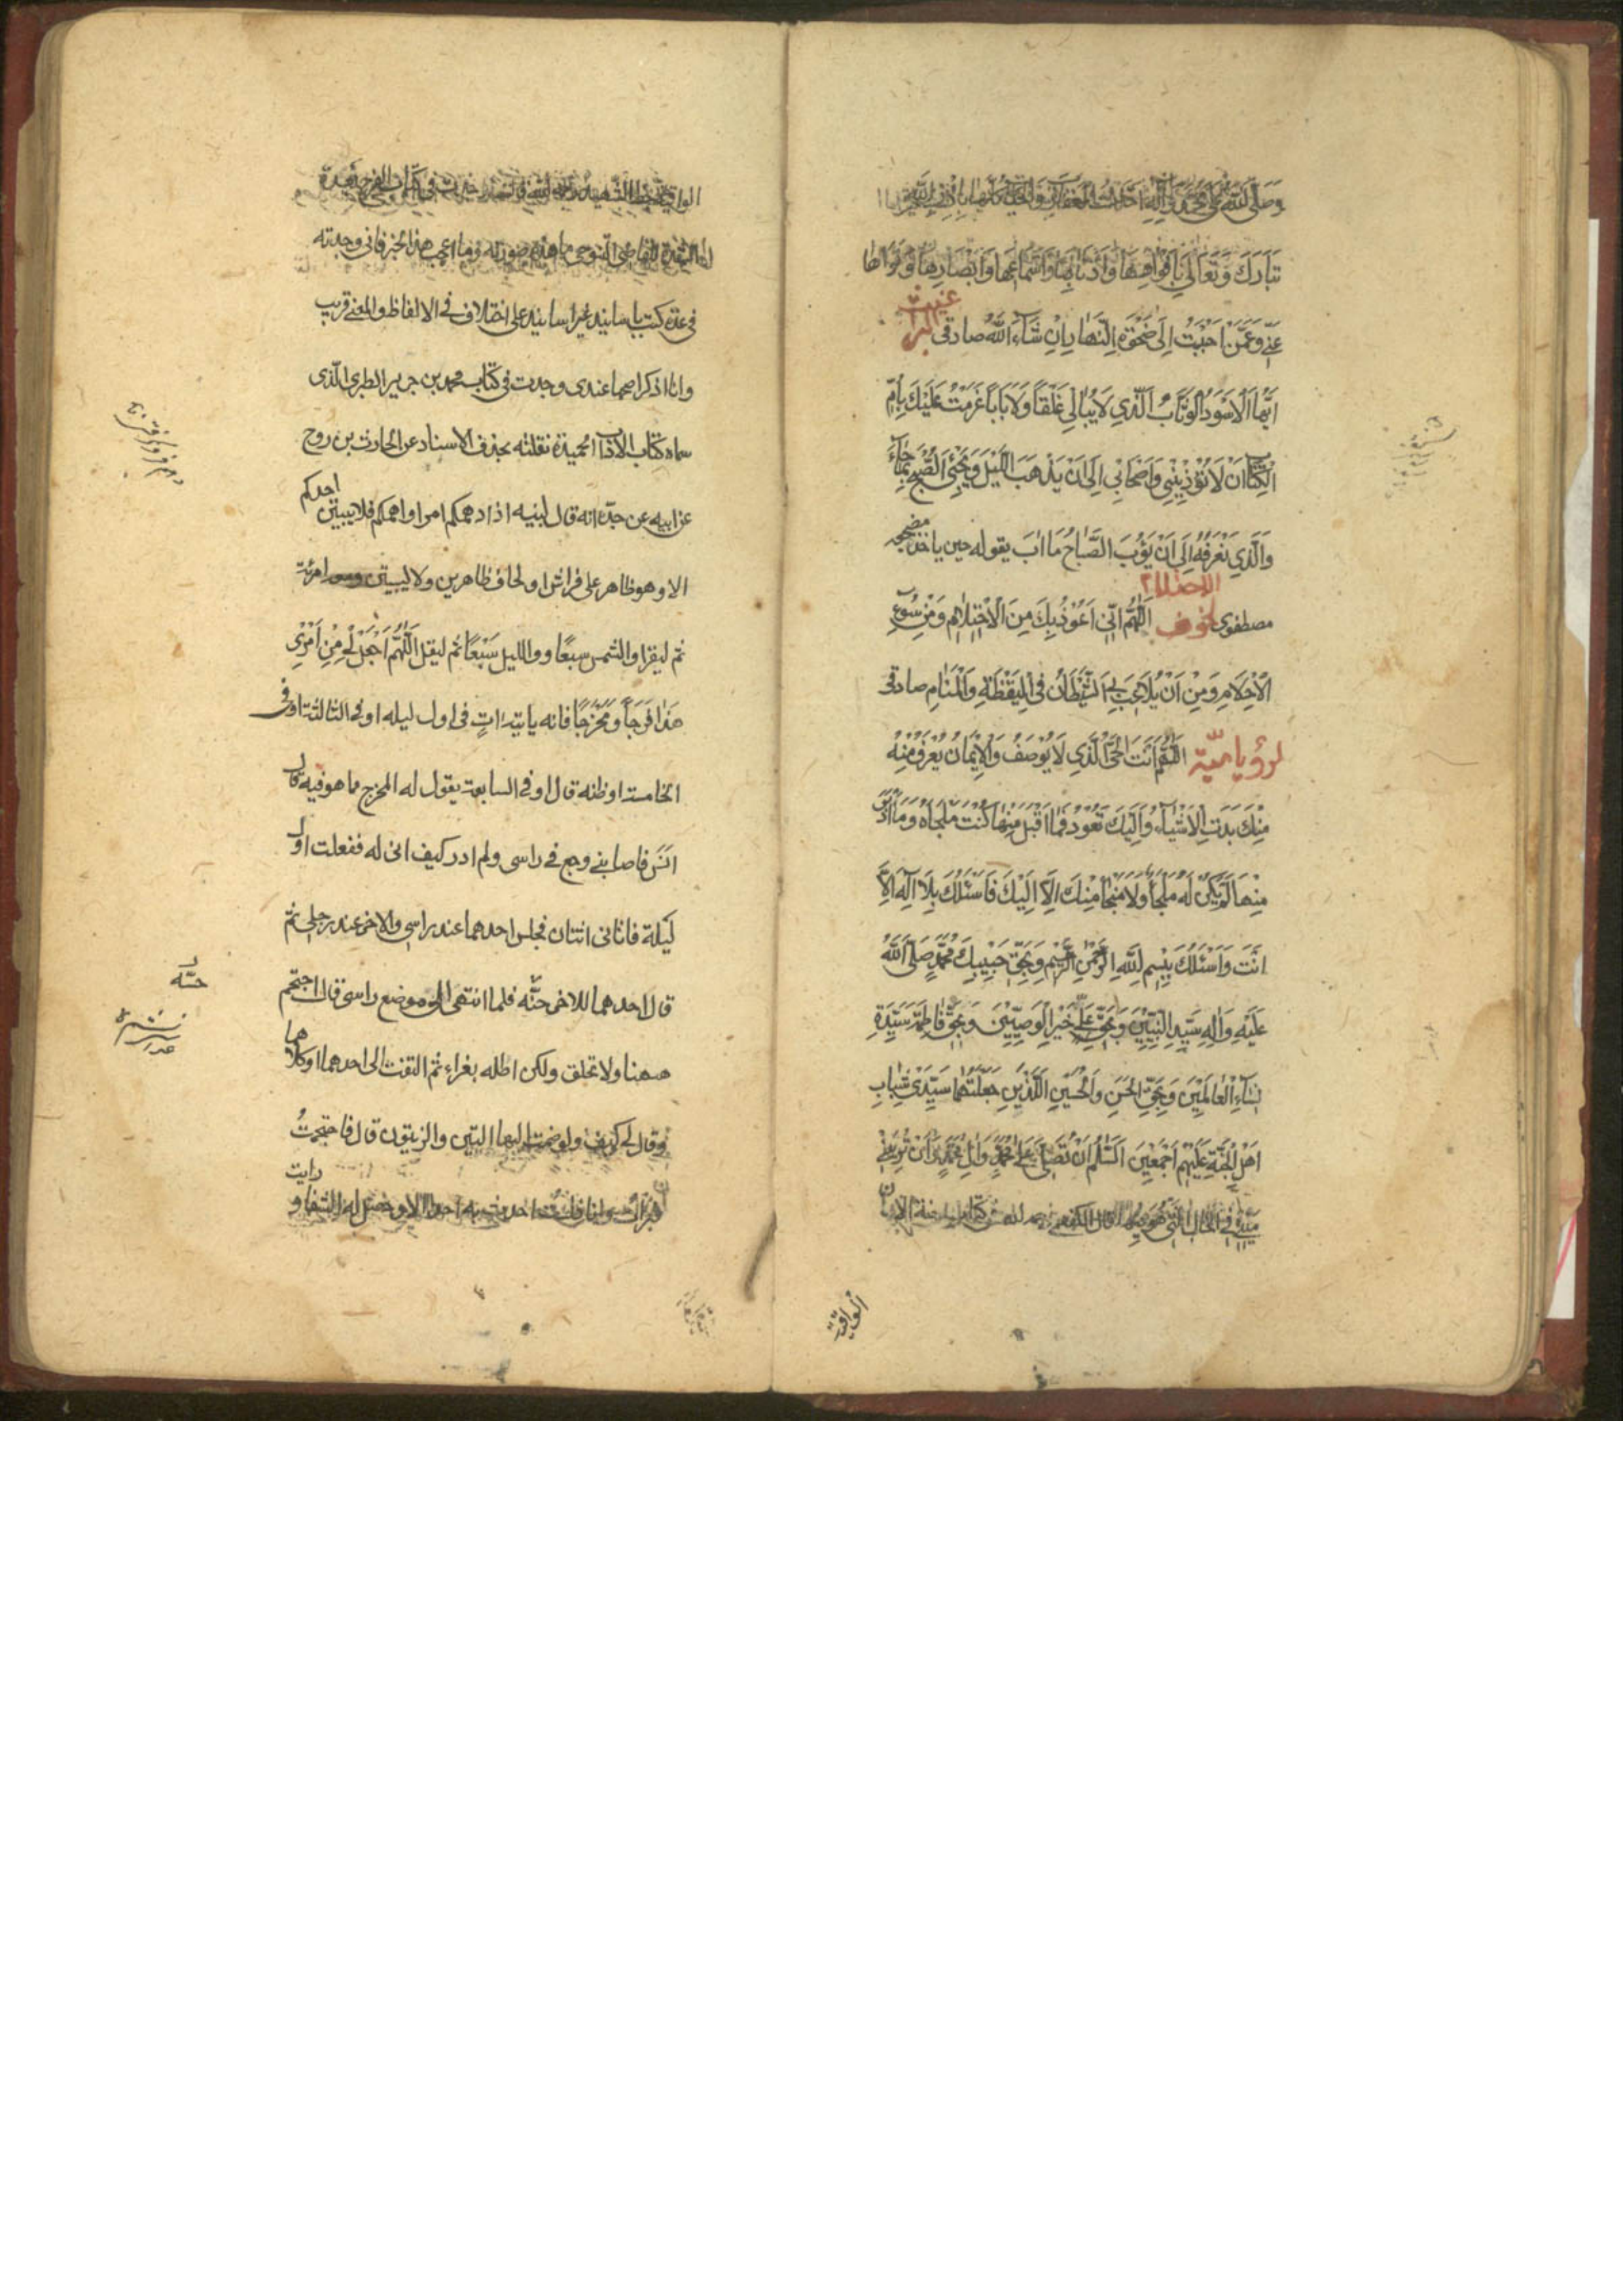 وَصَلَّى اللّٰهُ عَلٰى مُحَمَّدٍ وَاٰلِهِ اَخَذْتُ الْعَقَارِبَ وَالْحَيَّاتِ كُلَّهَا بِاِذْنِ اللّٰهِ
تَبَارَكَ وَتَعَالٰى بِاَفْوَاهِهَا وَاَذْنَابِهَا وَاَسْمَاعِهَا وَاَبْصَارِهَا وَقُوَاهَا
عَنِّي وَعَمَّنْ اَحْبَبْتُ اِلٰى ضَحْوَةِ النَّهَارِ اِنْ شَاءَ اللّٰهُ صادقى
اَيُّهَا الْاَسْوَدُ الْوَثَّابُ الَّذِي لَا يُبَالِي غَلَقًا وَلَا بَابًا عَزَمْتُ عَلَيْكَ بِاُمِّ
الْكِتَابِ اَنْ لَا تُؤْذِيَنِي وَاَصْحَابِي اِلٰى اَنْ يَذْهَبَ اللَّيْلُ وَيَجِيءَ الصُّبْحُ بِمَا جَاءَ
وَالَّذِي نَعْرِفُهُ اِلٰى اَنْ يَؤُبَ الصَّبَاحُ مَا اٰبَ يقوله حين ياخذ مضجعه
مصطفوى لخوف الاحتلام اَللّٰهُمَّ اِنِّي اَعُوْذُ بِكَ مِنَ الْاِحْتِلَامِ وَمِنْ سُوْءِ
الْاَحْلَامِ وَمِنْ اَنْ يُلَاعِبَ بِيَ الشَّيْطَانُ فِي الْيَقْظَةِ وَالْمَنَامِ صادقى
لرؤيا ميّته اَللّٰهُمَّ اَنْتَ الْحَيُّ الَّذِي لَا يُوْصَفُ وَالْاِيْمَانُ يُعْرَفُ مِنْهُ
مِنْكَ بَدَتِ الْاَشْيَاءُ وَاِلَيْكَ تَعُوْدُ فَمَا اَقْبَلَ مِنْهَا كُنْتَ مَلْجَاَهُ وَمَا اَدْبَرَ
مِنْهَا لَمْ يَكُنْ لَهُ مَلْجَاً وَلَا مَنْجَا مِنْكَ اِلَّا اِلَيْكَ فَاَسْئَلُكَ بِلَا اِلٰهَ اِلَّا
اَنْتَ وَاَسْئَلُكَ بِبِسْمِ اللّٰهِ الرَّحْمٰنِ الرَّحِيْمِ وَبِحَقِّ حَبِيْبِكَ مُحَمَّدٍ صَلَّى اللّٰهُ
عَلَيْهِ وَاٰلِهِ سَيِّدِ النَّبِيِّيْنَ وَبِحَقِّ عَلِيٍّ خَيْرِ الْوَصِيِّيْنَ وَبِحَقِّ فَاطِمَةَ سَيِّدَةِ
نِسَاءِ الْعَالَمِيْنَ وَبِحَقِّ الْحَسَنِ وَالْحُسَيْنِ الَّذَيْنِ جَعَلْتَهُمَا سَيِّدَيْ شَبَابِ
اَهْلِ الْجَنَّةِ عَلَيْهِمْ اَجْمَعِيْنَ السَّلَامُ اَنْ تُصَلِّيَ عَلٰى مُحَمَّدٍ وَاٰلِ مُحَمَّدٍ وَاَنْ تُرِيَنِي
مَيِّتِي فِي الْحَالِ الَّتِي هُوَ فِيْهَا قال الكفعمي
الواقية
الواقية بخط الشهيد في كتاب الفرج بعد
الشدة للقاضى التنوخى ما هذه صورته وما اعجب هذا الخبر فانى وجدته
فى عدة كتب باسانيد غير اسانيد على اختلاف فى الالفاظ والمعنى قريب
وانا اذكر اصحها عندى وجدت فى كتاب محمد بن جرير الطبرى الّذى
سماه كتاب الاداب الحميدة نقلته بحذف الاسناد عن الحارث بن روح
عن ابيه عن جدّه انه قال لبنيه اذا دهمكم امر او اهمكم فلا يبيتن احدكم
الا وهو طاهر على فراش ولحاف طاهرين ولا يبيتن ومعه امرئة
ثم ليقرا والشمس سَبْعًا وواليل سَبْعًا ثم ليقل اَللّٰهُمَّ اجْعَلْ لِي مِنْ اَمْرِي
هٰذَا فَرَجًا وَمَخْرَجًا فانه ياتيه اٰتٍ فى اول ليله او فى الثالثة او فى
الخامسة او ظنه قال او فى السابعة يقول له المخرج مما هو فيه قال
انس فاصابنى وجع فى راسى ولم ادر كيف اتى له ففعلت اول
ليلة فاتانى اثنان فجلس احدهما عند راسى والاخر عند رجلى ثم
قال احدهما للاخر جسّه فلما انتهى الى موضع راسى قال احتجم
ههنا ولا تحلق ولكن اطله بغراء ثم التفت الى احدهما او كلاهما
وقال لى كيف ولو ضممت اليهما التين والزيتون قال فاحتجمتُ
فبرأت وانا فلست احدث به احدا الا وحصل له الشفا ورايت
جسّه